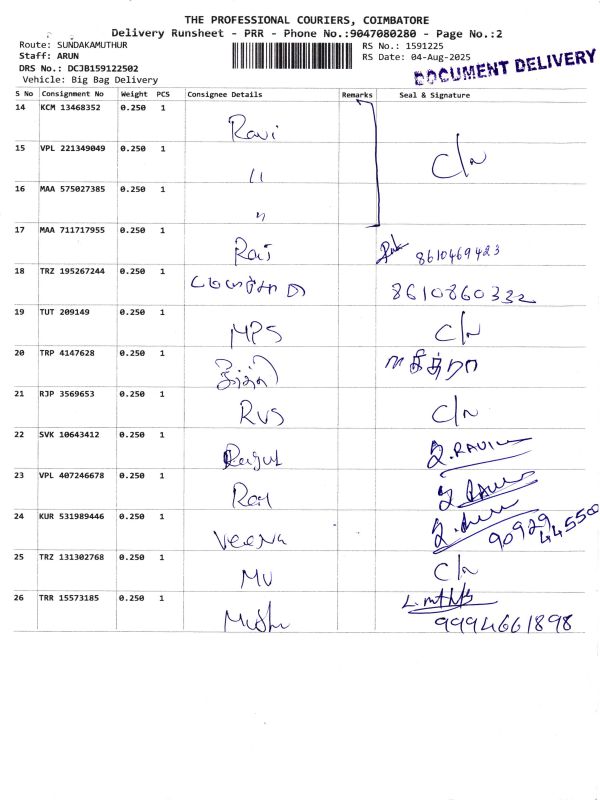 THE PROFESSIONAL COURIERS, COIMBATORE
Delivery Runsheet - PRR - Phone No.:9047080280 - Page No.:2
Route: SUNDAKAMUTHUR
RS No.: 1591225
Staff: ARUN
RS Date: 04-Aug-2025
DRS No.: DCJB159122502
DOCUMENT DELIVERY
Vehicle: Big Bag Delivery
S No Consignment No Weight PCS Consignee Details Remarks Seal & Signature
14 KCM 13468352 0.250 1 Ravi
15 VPL 221349049 0.250 1 " C/n
16 MAA 575027385 0.250 1 "
17 MAA 711717955 0.250 1 Raj 8610469423
18 TRZ 195267244 0.250 1 8610860332
19 TUT 209149 0.250 1 MPS C/n
20 TRP 4147628 0.250 1
21 RJP 3569653 0.250 1 RVS C/n
22 SVK 10643412 0.250 1 Ragul
23 VPL 407246678 0.250 1
24 KUR 531989446 0.250 1 Veena 90929 45500
25 TRZ 131302768 0.250 1 MV C/n
26 TRR 15573185 0.250 1 9994661898